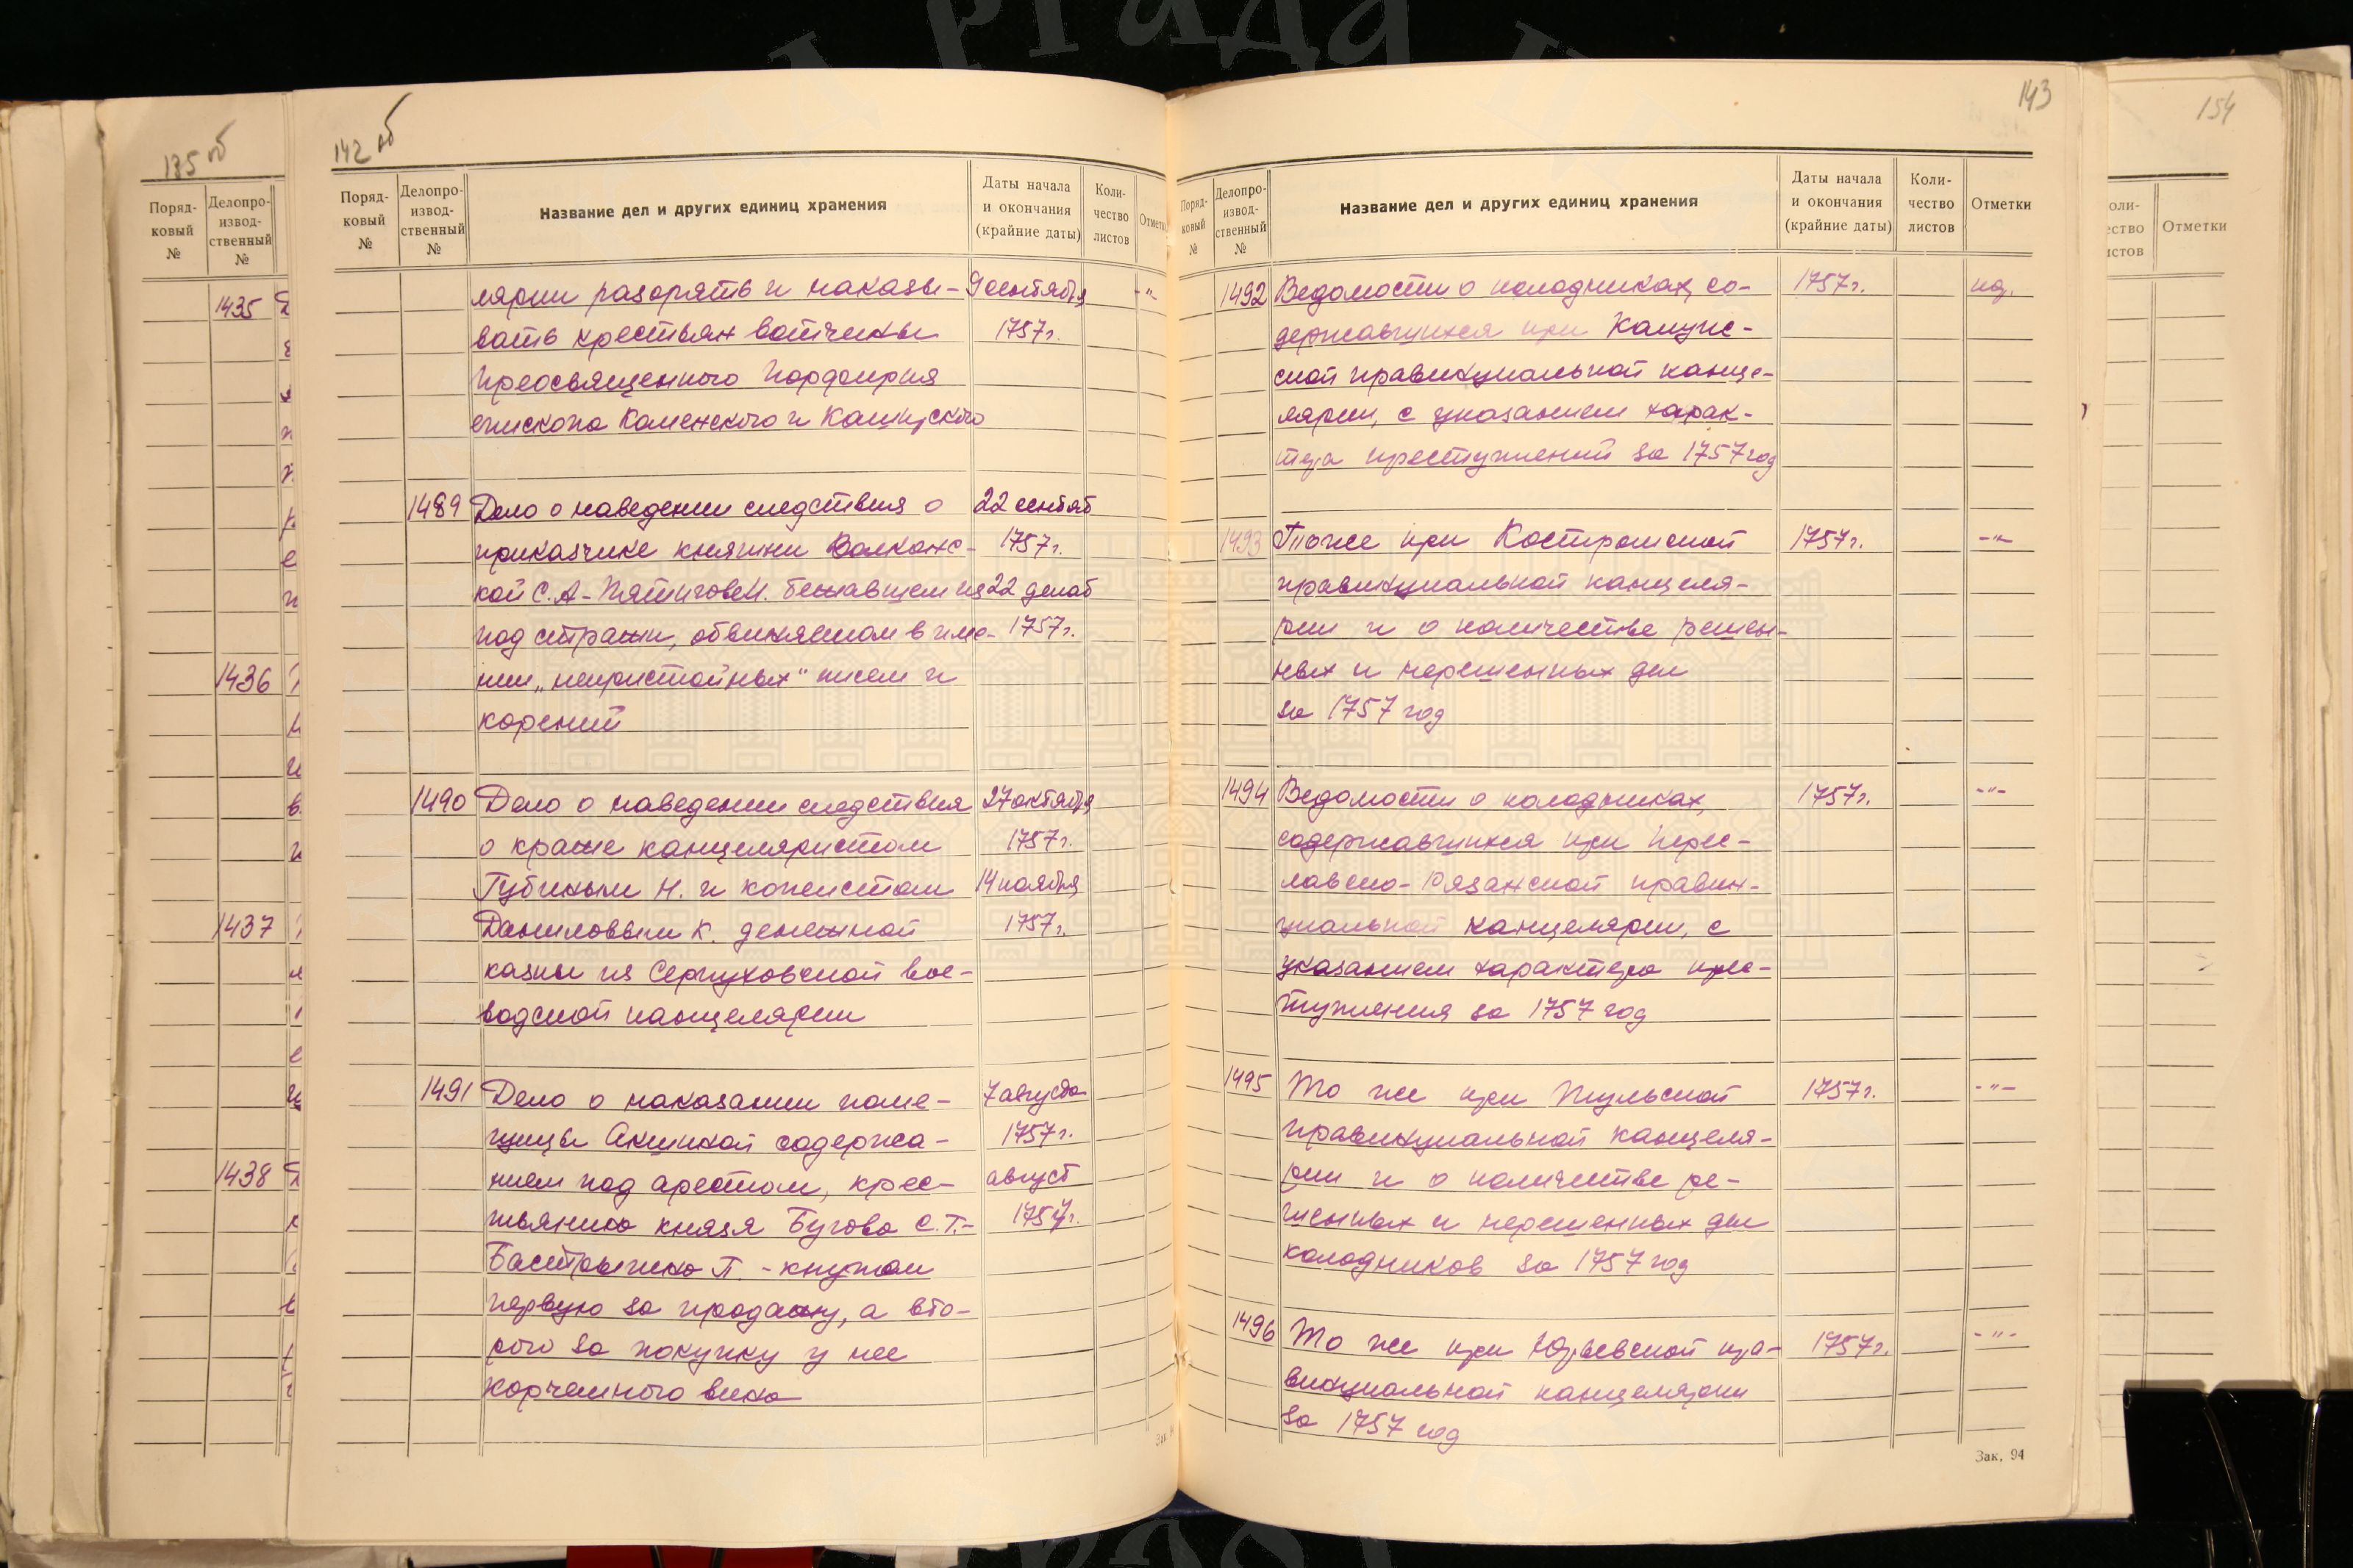 135 об
Поряд-
ковый
№
Делопро-
извод-
ственный
№
1435
1436
1437
1438
142 об
Поряд-
ковый
№
Делопро-
извод-
ственный
№
Название дел и других единиц хранения
Даты начала
и окончания
(крайние даты)
Коли-
чество
листов
Отметки
лярии разорять и наказы- 9 сентября -"-
вать крестьян вотчины 1757 г.
преосвященного Порфирия
епископа Коломенского и Каширского
1489 Дело о наведении следствия о 22 сентяб
приказчике княгини Волконс- 1757 г.
кой С.А. - бежавшем из 22 декаб
под стражи, обвиняемом в име- 1757 г.
нии „непристойных" писем и
корений
1490 Дело о наведении следствия 27 октября
о краже канцеляристом 1757 г.
Губиным Н. и копеистом 14 ноября
Даниловым К. денежной 1757 г.
казны из Серпуховской вое-
водской канцелярии
1491 Дело о наказании поме- 7 августа
щицы содержа- 1757 г.
нием под арестом, крес- август
тьянина князя С.Т.- 1757 г.
П. - кнутом
первую за продажу, а вто-
рого за покупку у нее
корчемного вина
143
Поряд-
ковый
№
Делопро-
извод-
ственный
№
Название дел и других единиц хранения
Даты начала
и окончания
(крайние даты)
Коли-
чество
листов
Отметки
1492 Ведомости о колодниках, со- 1757 г.
державшихся при Калужс-
кой правинциальной канце-
лярии, с указанием харак-
тера преступлений за 1757 год
1493 То же при Костромской 1757 г. -"-
правинциальной канцеля-
рии и о количестве решен-
ных и нерешенных дел
за 1757 год
1494 Ведомости о колодниках, 1757 г. -"-
содержавшихся при Перес-
лавско-Рязанской правин-
циальной канцелярии, с
указанием характера прес-
тупления за 1757 год
1495 То же при Тульской 1757 г. -"-
правинциальной канцеля-
рии и о количестве ре-
шенных и нерешенных дел
колодников за 1757 год
1496 То же при Юрьевской пра- 1757 г. -"-
винциальной канцелярии
за 1757 год
Зак. 94
154
оли-
ество
истов
Отметки